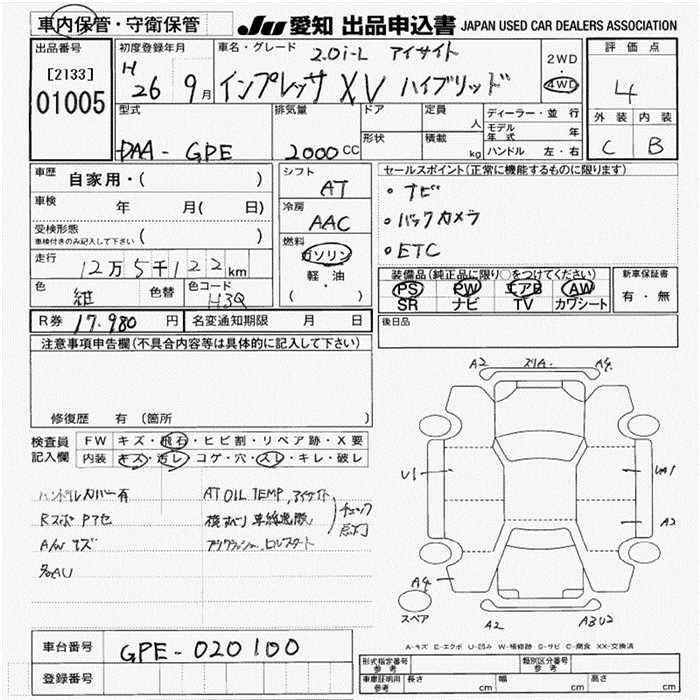 車内保管・守衛保管
JU 愛知 出品申込書 JAPAN USED CAR DEALERS ASSOCIATION
出品番号
[2133]
01005
初度登録年月
H 26 9月
車名・グレード 2.0i-L アイサイト
インプレッサ XV ハイブリッド
2WD
・
4WD
評価点
4
外装 内装
C B
型式
DAA-GPE
排気量
2000cc
ドア
形状
定員
人
積載
kg
ディーラー・並行
モデル年式 年
ハンドル 左・右
車歴 自家用・( )
車検 年 月( 日)
受検形態
車検付きのみ記入して下さい ( )
走行 12万5千122km
色 紺 色替 色コード H3Q
シフト
AT
冷房
AAC
燃料
ガソリン
軽・油
( )
セールスポイント(正常に機能するものに限ります)
・ナビ
・バックカメラ
・ETC
装備品(純正品に限り○をつけてください)
PS PW エアB AW
SR ナビ TV カワシート
新車保証書
有・無
R券 17.980 円 名変通知期限 月 日
後日品
注意事項申告欄(不具合内容等は具体的に記入して下さい)
修復歴 有 (箇所 )
検査員記入欄
FW キズ・飛石・ヒビ割・リペア跡・X要
内装 キズ・汚レ・コゲ・穴・スレ・キレ・破レ
ハンドルカバー有
Rスポ Pアセ
A/W キズ
AT OIL TEMP、アイサイト
横すべり 車線逸脱
プリクラッシュ、ヒルスタート
チェック
点灯
A2 A4
U1 UA1
A2
A4
A2 A3U2
スペア
A-キズ E-エクボ U-凹み W-補修跡 S-サビ C-腐食 XX-交換済
車台番号 GPE-020100
登録番号
形式指定番号 参考
類別区分番号 参考
車庫証明用 参考 長さ cm 幅 cm 高さ cm